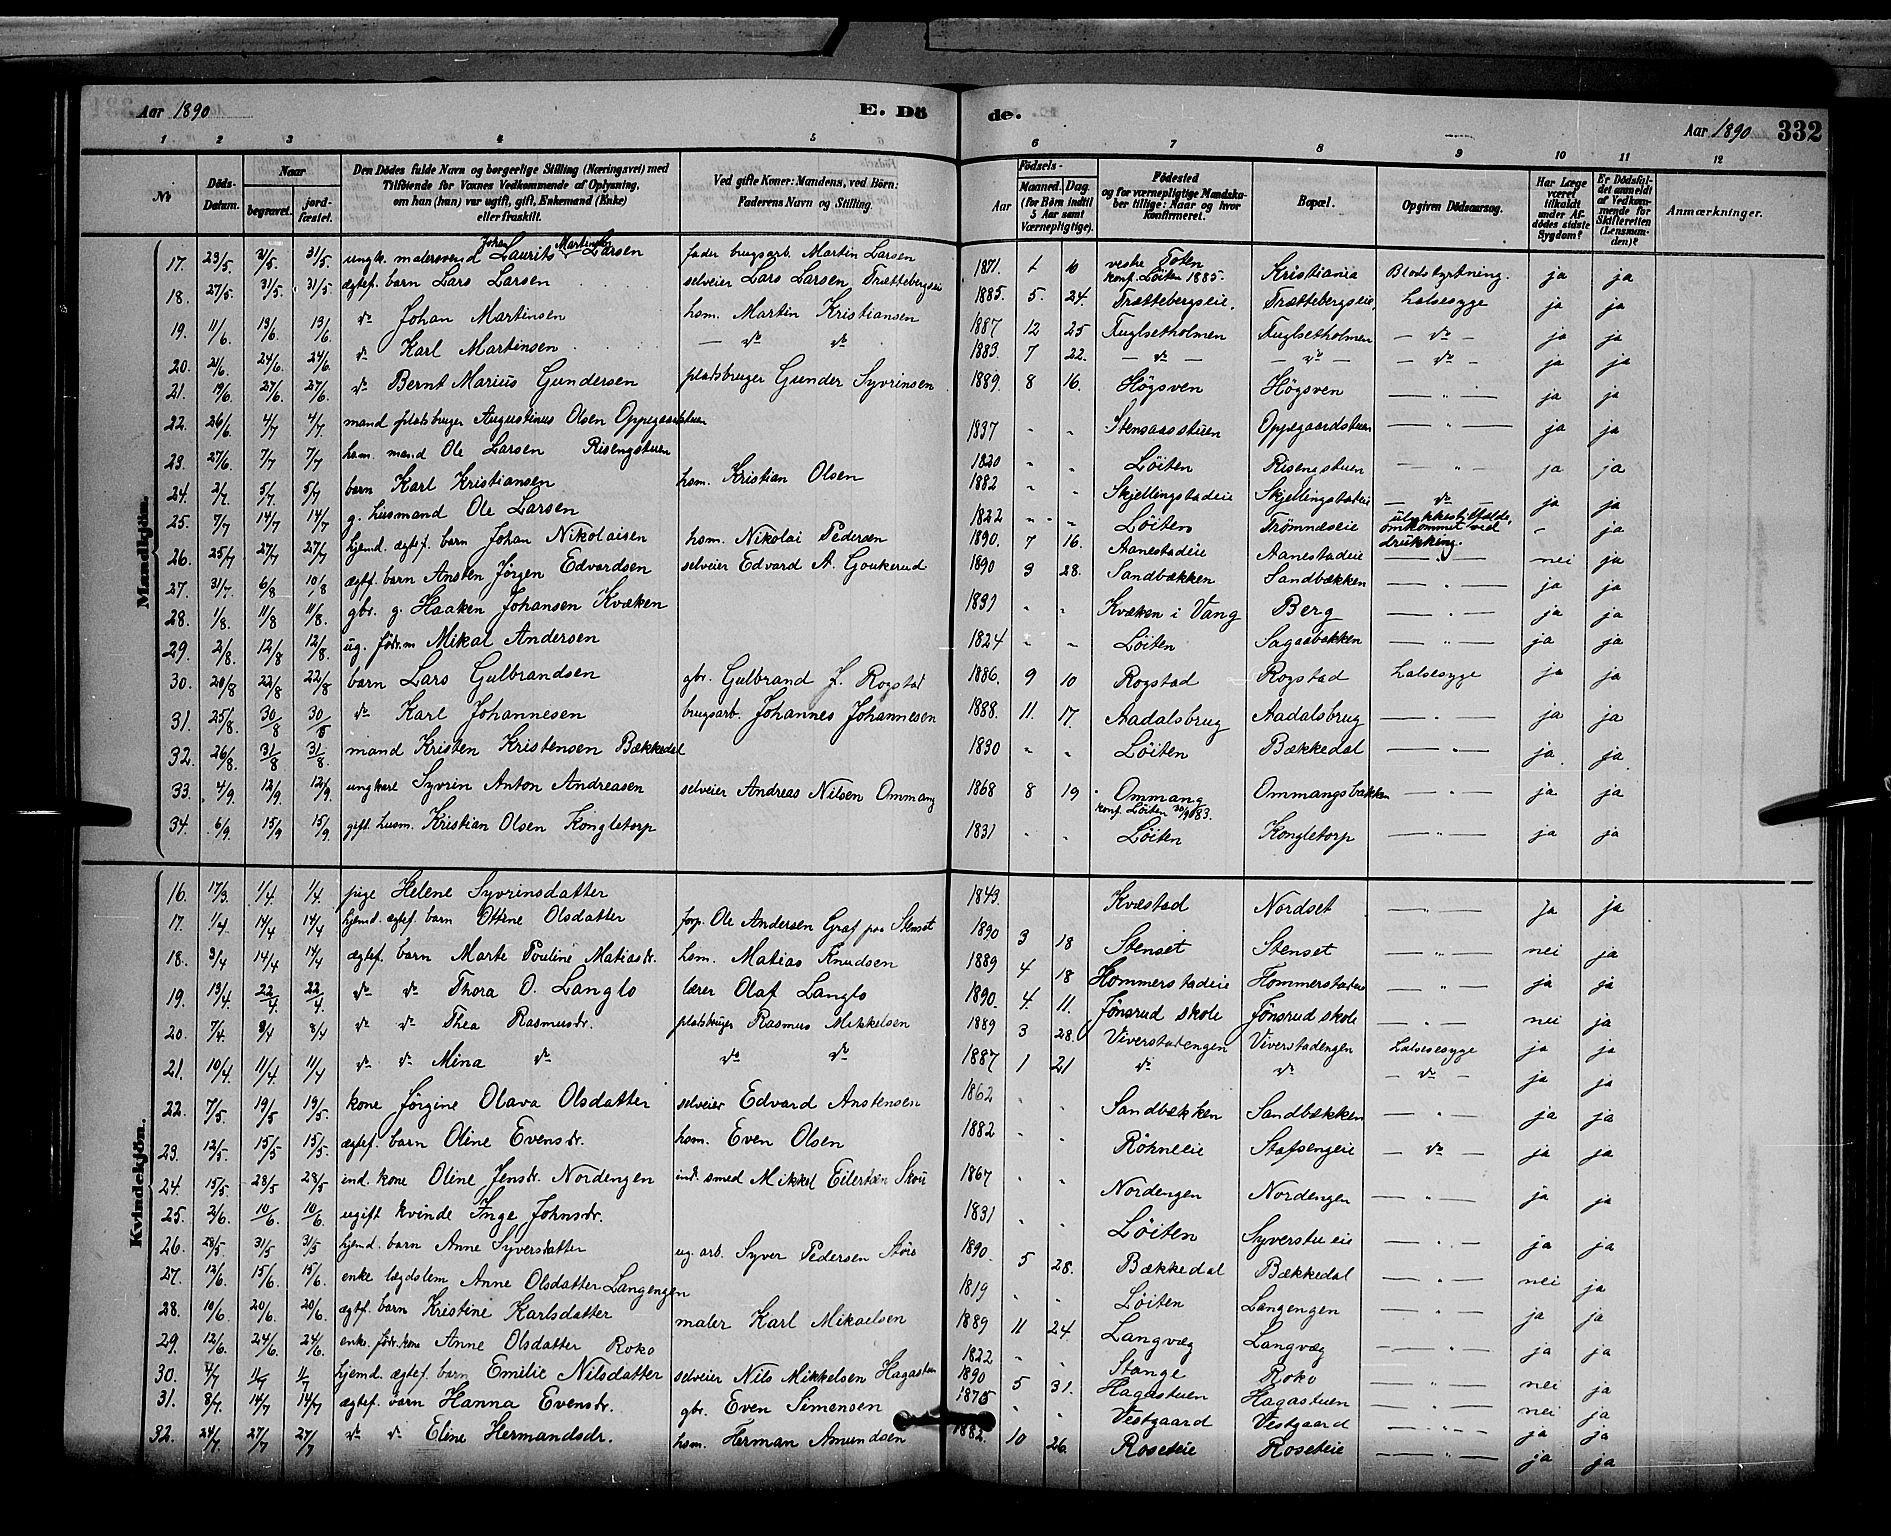 Aar 1890 E. Dö de. Aar 1890 332
1 2 3 4 5 6 7 8 9 10 11 12
No Döds-Datum. Naar begravet. jordfæstet. Den Dödes fulde Navn og borgerlige Stilling (Næringsvei) med Tilföiende for Voxnes Vedkommende af Oplysning, om han (hun) var ugift, gift, Enkemand (Enke) eller fraskilt. Ved gifte Koner: Mandens, ved Börn: Faderens Navn og Stilling. Födsels- Aar Maaned. Dag. (for Börn indtil 5 Aar samt Værnepligtige). Födested og for værnepligtige Mandskaber tillige: Naar og hvor konfirmeret. Bopæl. Opgiven Dödsaarsag. Har Læge været tilkaldt under Afdödes sidste Sygdom? Er Dödsfaldet anmeldt af Vedkommende for Skifteretten (Lensmanden)? Anmærkninger.
Mandkjön.
17. 23/5. 31/5. 31/5 ungk. malersvend Johan Laurits Martinsen Larsen fader brugsarb. Martin Larsen 1871. 1 10 vestre Toten konf. Löiten 1885. Kristiania Blodstyrtning. ja ja
18. 27/5. 31/5. 31/5. ægtef. barn Lars Larsen selveier Lars Larsen Trættebergseie 1885. 5. 24. Trættebergseie. Trættebergseie. Halsesyge ja ja
19. 11/6. 13/6. 13/6. do Johan Martinsen hsm. Martin Kristiansen 1887 12 25 Fuglsetholmen Fuglsetholmen — do — ja ja
20. 21/6. 24/6. 24/6. do Karl Martinsen — do do 1883. 7 22. — do — — do — — do — ja ja
21. 19/6. 27/6. 27/6. do Bernt Marius Gundersen pladsbruger Gunder Syvrinsen 1889. 8 16. Högsven Högsven — " — ja ja
22. 26/6. 4/7 4/7. mand pladsbruger Augustinus Olsen Oppegaardstuen 1837 - - Stensaasstuen Oppegaardstuen — " — ja ja
23. 27/6. 7/7 7/7 hsm. mand Ole Larsen Risengstuen 1820 " " Löiten Risengstuen — " — ja ja
24. 2/7. 5/7 5/7. barn Karl Kristiansen hsm. Kristian Olsen 1882 " " Skjellingstadeie Skjellingstadeie — do — ja ja
25. 7/7 14/7 14/7 g. husmand Ole Larsen 1822 " " Löiten Trömnæseie ulykkestilfælde, omkommet ved drukking. - ja
26. 25/7 27/7 27/7 hjemd. ægtef. barn Johan Nikolaisen hsm. Nikolai Pedersen 1890. 7 16. Aanestadeie Aanestadeie nei ja
27. 31/7. 6/8 10/8 ægtef. barn Ansten Jörgen Edvardsen selveier Edvard A. Goukerud 1890 3 28. Sandbækken Sandbækken — " — ja ja
28. 1/8. 11/8 11/8. gbr. g. Haaken Johansen Kvæken " " Kvæken i Vang Berg — " — ja ja
29. 2/8. 12/8 12/8. ug. födr.m Mikal Andersen 1824 - - Löiten Sagaabakken — " — ja ja
30. 20/8 22/8 22/8 barn Lars Gulbrandsen gbr. Gulbrand J. Rogstad 1886. 9 10 Rogstad Rogstad Halsesyge ja ja
31. 25/8. 30/8 30/8 do Karl Johannesen brugsarb. Johannes Johannesen 1888. 11. 17. Aadalsbrug Aadalsbrug — " — ja ja
32. 26/8. 31/8 31/8. mand Kristen Kristensen Bækkedal 1830 " " Löiten Bækkedal — " — ja. ja.
33. 4/9. 12/9. 12/9. ungkarl Syvrin Anton Andreasen selveier Andreas Nilsen Ommang 1868 8 19 Ommang konf. Löiten 30/9 1883. Ommangsbakken — " — ja ja
34. 6/9. 15/9 15/9. gift. husm. Kristian Olsen Kongletorp 1831 " " Löiten Kongletorp — " — ja ja
Kvindekjön.
16. 17/3. 1/4. 1/4. pige Helene Syvrinsdatter 1843. Kvæstad Nordset — " — ja ja
17. 1/4. 14/4 14/4 hjemd. ægtef. barn Ottine Olsdatter forp. Ole Andersen Graf paa Stenset 1890 3 18 Stenset Stenset — " — nei ja
18. 3/4 14/4 14/4 ægtef. barn Marte Pouline Matiasdr. hsm. Matias Knudsen 1889 4 18 Hommerstadeie Hommerstadeie — " — ja ja
19. 19/4. 22/4 22/4. do do Thora O. Langlo lærer Olaf Langlo 1890. 4. 11. Jönsrud skole Jönsrud skole — " — nei ja
20. 7/4. 8/4 8/4 do do Thea Rasmusdr. pladsbruger Rasmus Mikkelsen 1889 3 28. Viverstadengen Viverstadengen Halsesyge ja ja
21. 10/4. 11/4 11/4 do do Mina do do do 1887 1 21 do do — do — ja ja
22. 7/5 19/5 19/5. kone Jörgine Olava Olsdatter selveier Edvard Anstensen 1862 " " Sandbækken Sandbækken — " — ja ja
23. 12/5. 15/5 15/5. ægtef. barn Oline Evensdr. hsm. Even Olsen 1882 " " Röhneeie Stafsengeie — do — ja ja
24. 15/5. 28/5 28/5 ind. kone Oline Jensdr. Nordengen ind. smed Mikkel Eilertsen Skou 1867 " " Nordengen Nordengen — " — ja ja
25. 2/6. 10/6. 10/6 ugift kvinde Inge Johnsdr. 1831 " " Löiten Syverstueie — " — ja ja
26. 28/5. 31/5 31/5 hjemd. barn Anne Syversdatter ug. arb. Syver Pedersen 1890. 5 28. Bækkedal Bækkedal — " — nei ja
27. 12/6. 15/6. 15/6. enke lægdslem Anne Olsdatter Langengen 1819 " " Löiten Langengen — " — ja ja
28. 10/6. 20/6. 20/6. ægtf. barn Kristine Karlsdatter maler Karl Mikaelsen 1889 11 24. Langvæg Langvæg — " — ja ja
29. 12/6. 24/6. 24/6. enke. födr.kone Anne Olsdatter Roko 1822 " " Stange Roko — " — nei ja
30. hjemd. ægtef. barn Emilie Nilsdatter selveier Nils Mikkelsen Hagastuen 1890 5 31. Hagastuen Hagastuen — " — nei ja
31. 8/7 14/7 14/7 ægtef. barn Hanna Evensdr. gbr. Even Simensen 1875 " " Vestgaard Vestgaard — " — ja ja
32. 24/7 27/7 27/7 do do Eline Hermandsdr. hsm. Herman Amundsen 1882. 10 26. Roseteie Roseteie — " — ja ja